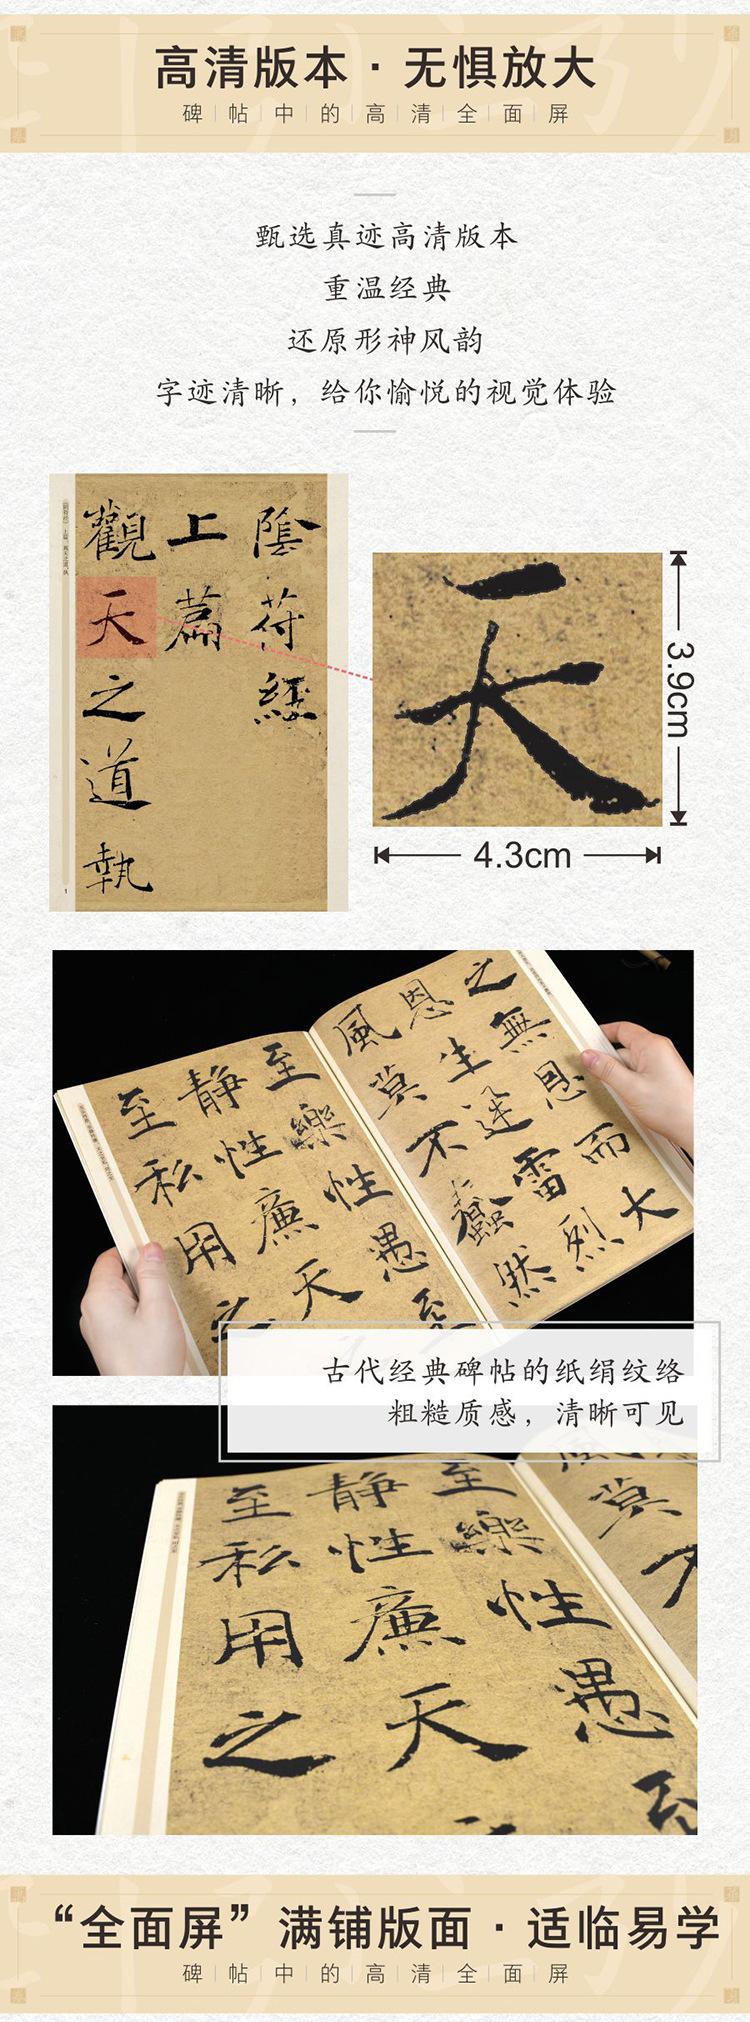 高清版本·无惧放大
碑帖中的高清全面屏
甄选真迹高清版本
重温经典
还原形神风韵
字迹清晰，给你愉悦的视觉体验
陰符經
上篇
觀天之道執
天
3.9cm
4.3cm
之無恩而大
恩生迅雷烈
風莫不蠢然
至樂性愚至
靜性廉天
至私用之
古代经典碑帖的纸绢纹络
粗糙质感，清晰可见
至樂性愚至
靜性廉天
至私用之
“全面屏”满铺版面·适临易学
碑帖中的高清全面屏